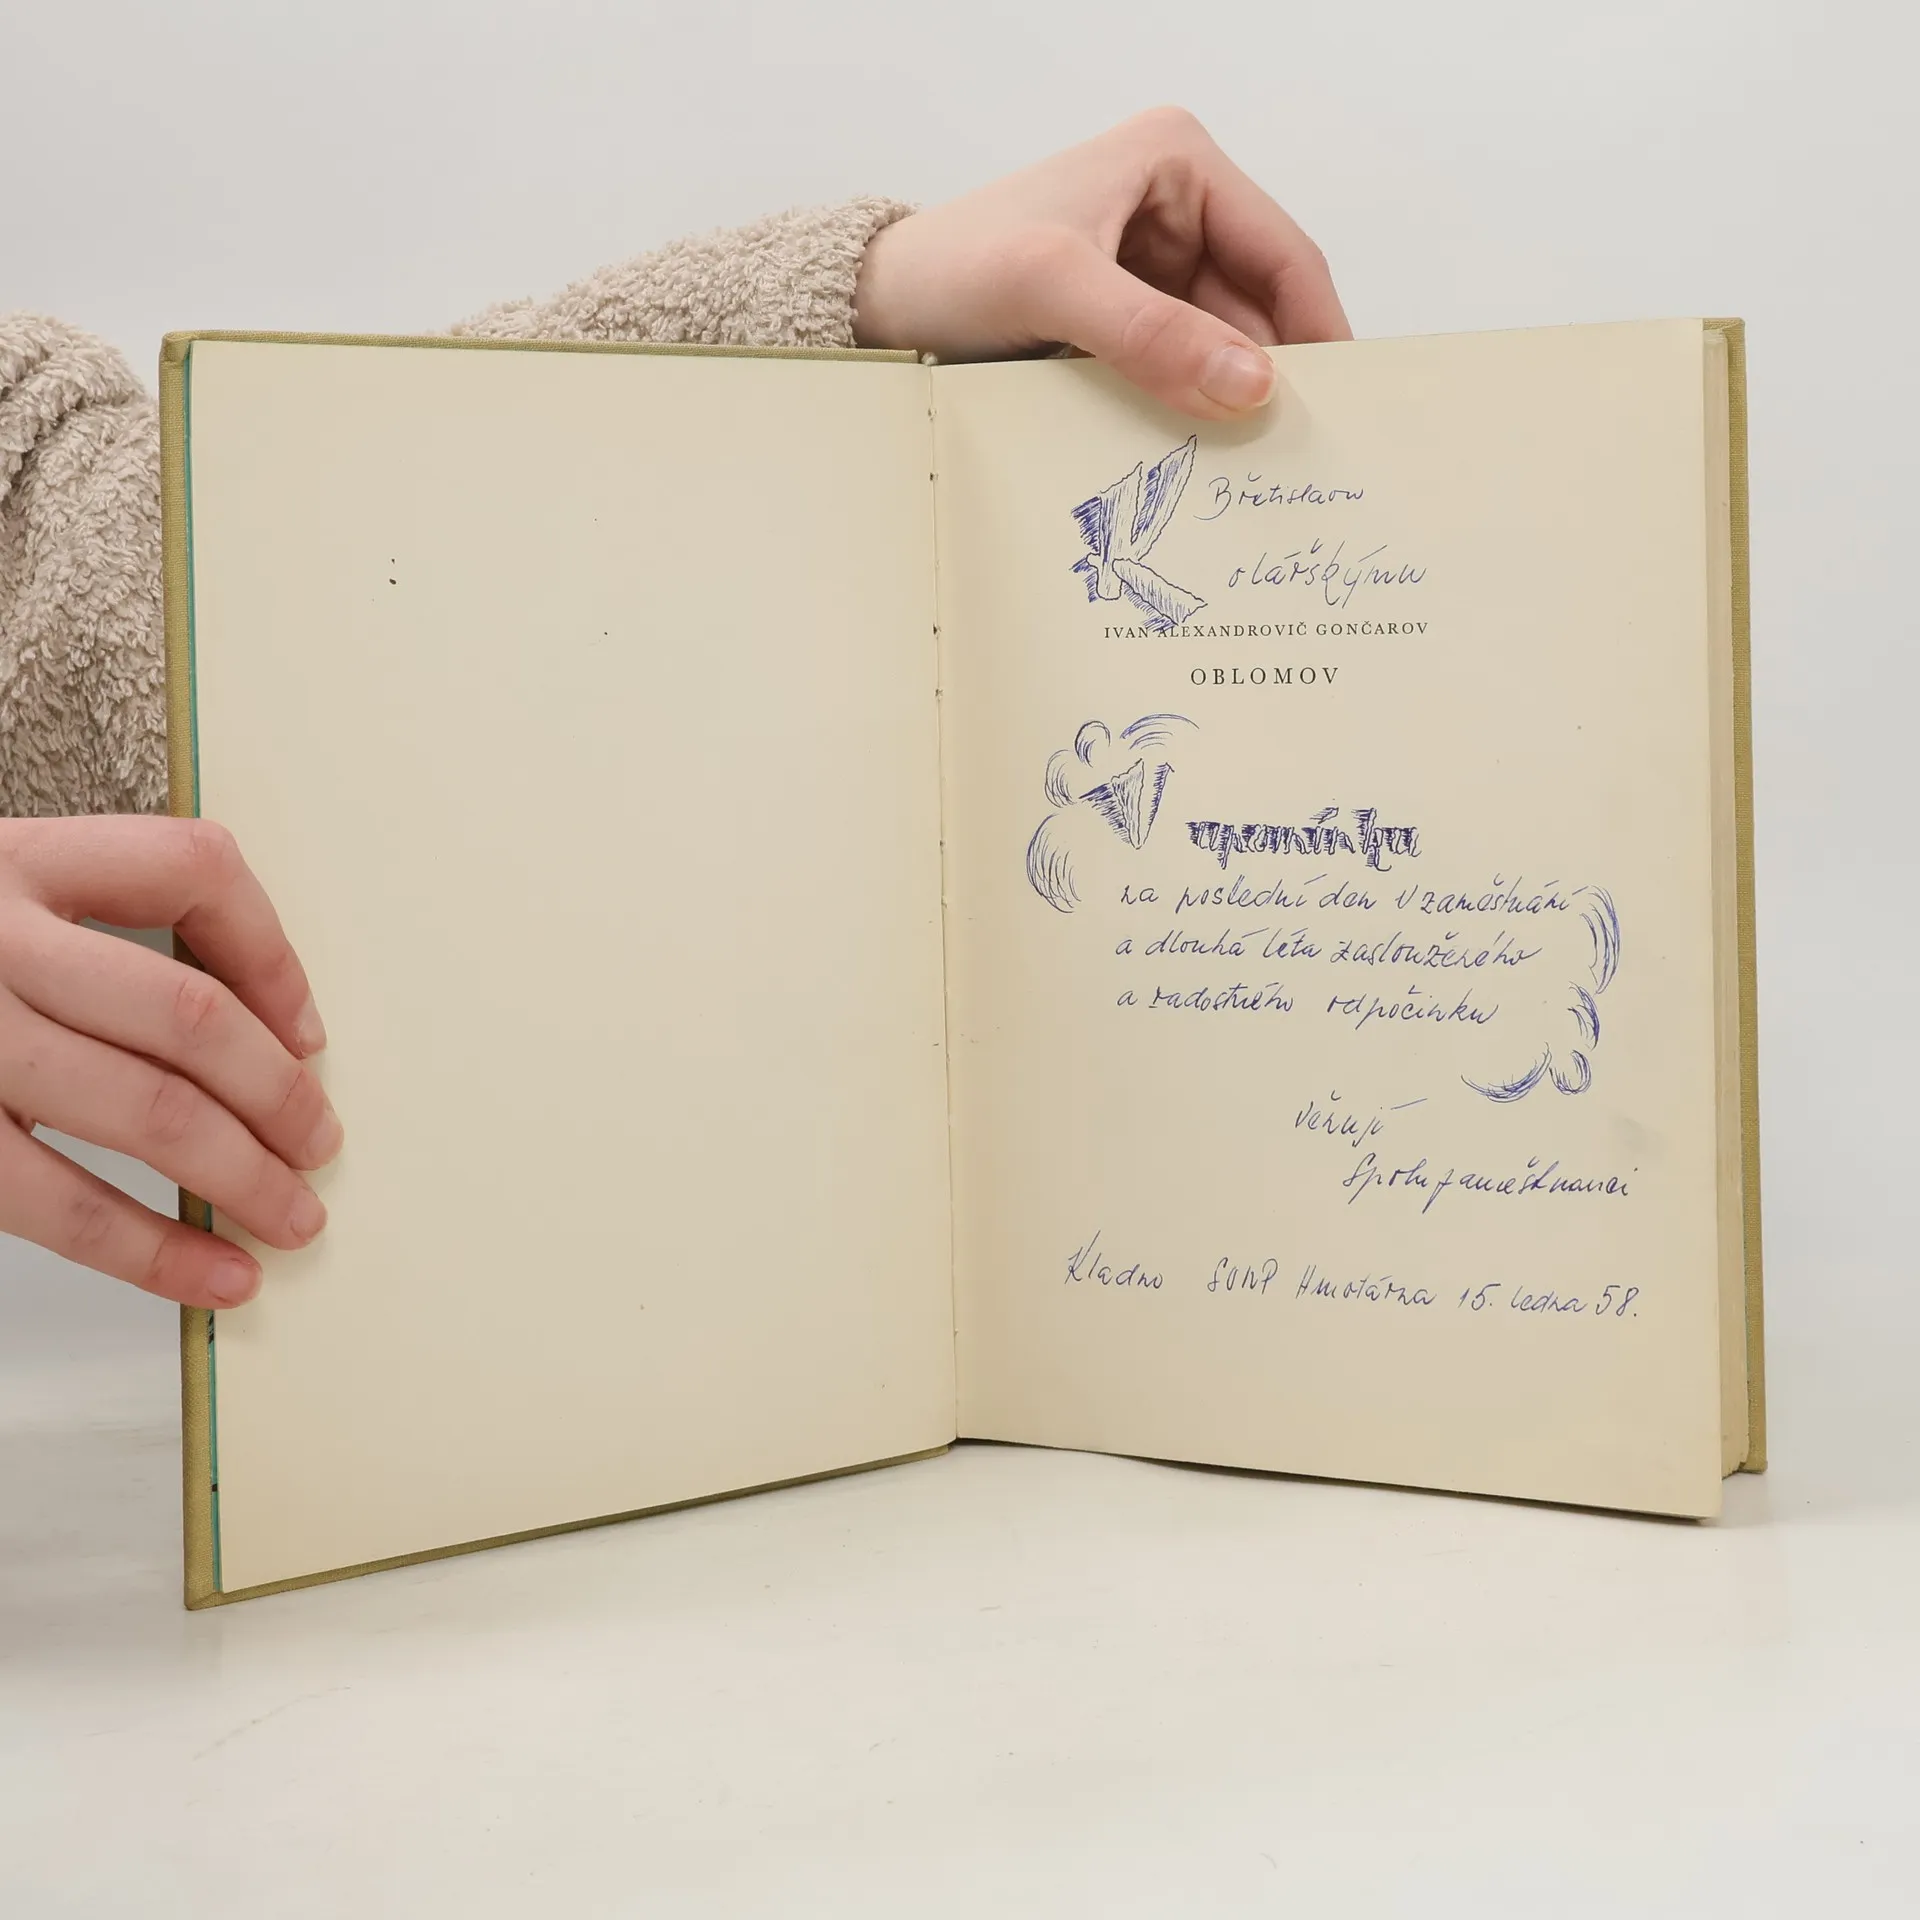 K Břetislavu
olářskýmu
IVAN ALEXANDROVIČ GONČAROV
OBLOMOV
V upomínku
na poslední den v zaměstnání
a dlouhá léta zaslouženého
a radostného odpočinku
věnují
Spoluzaměstnanci
Kladno SONP Hmotárna 15. ledna 58.